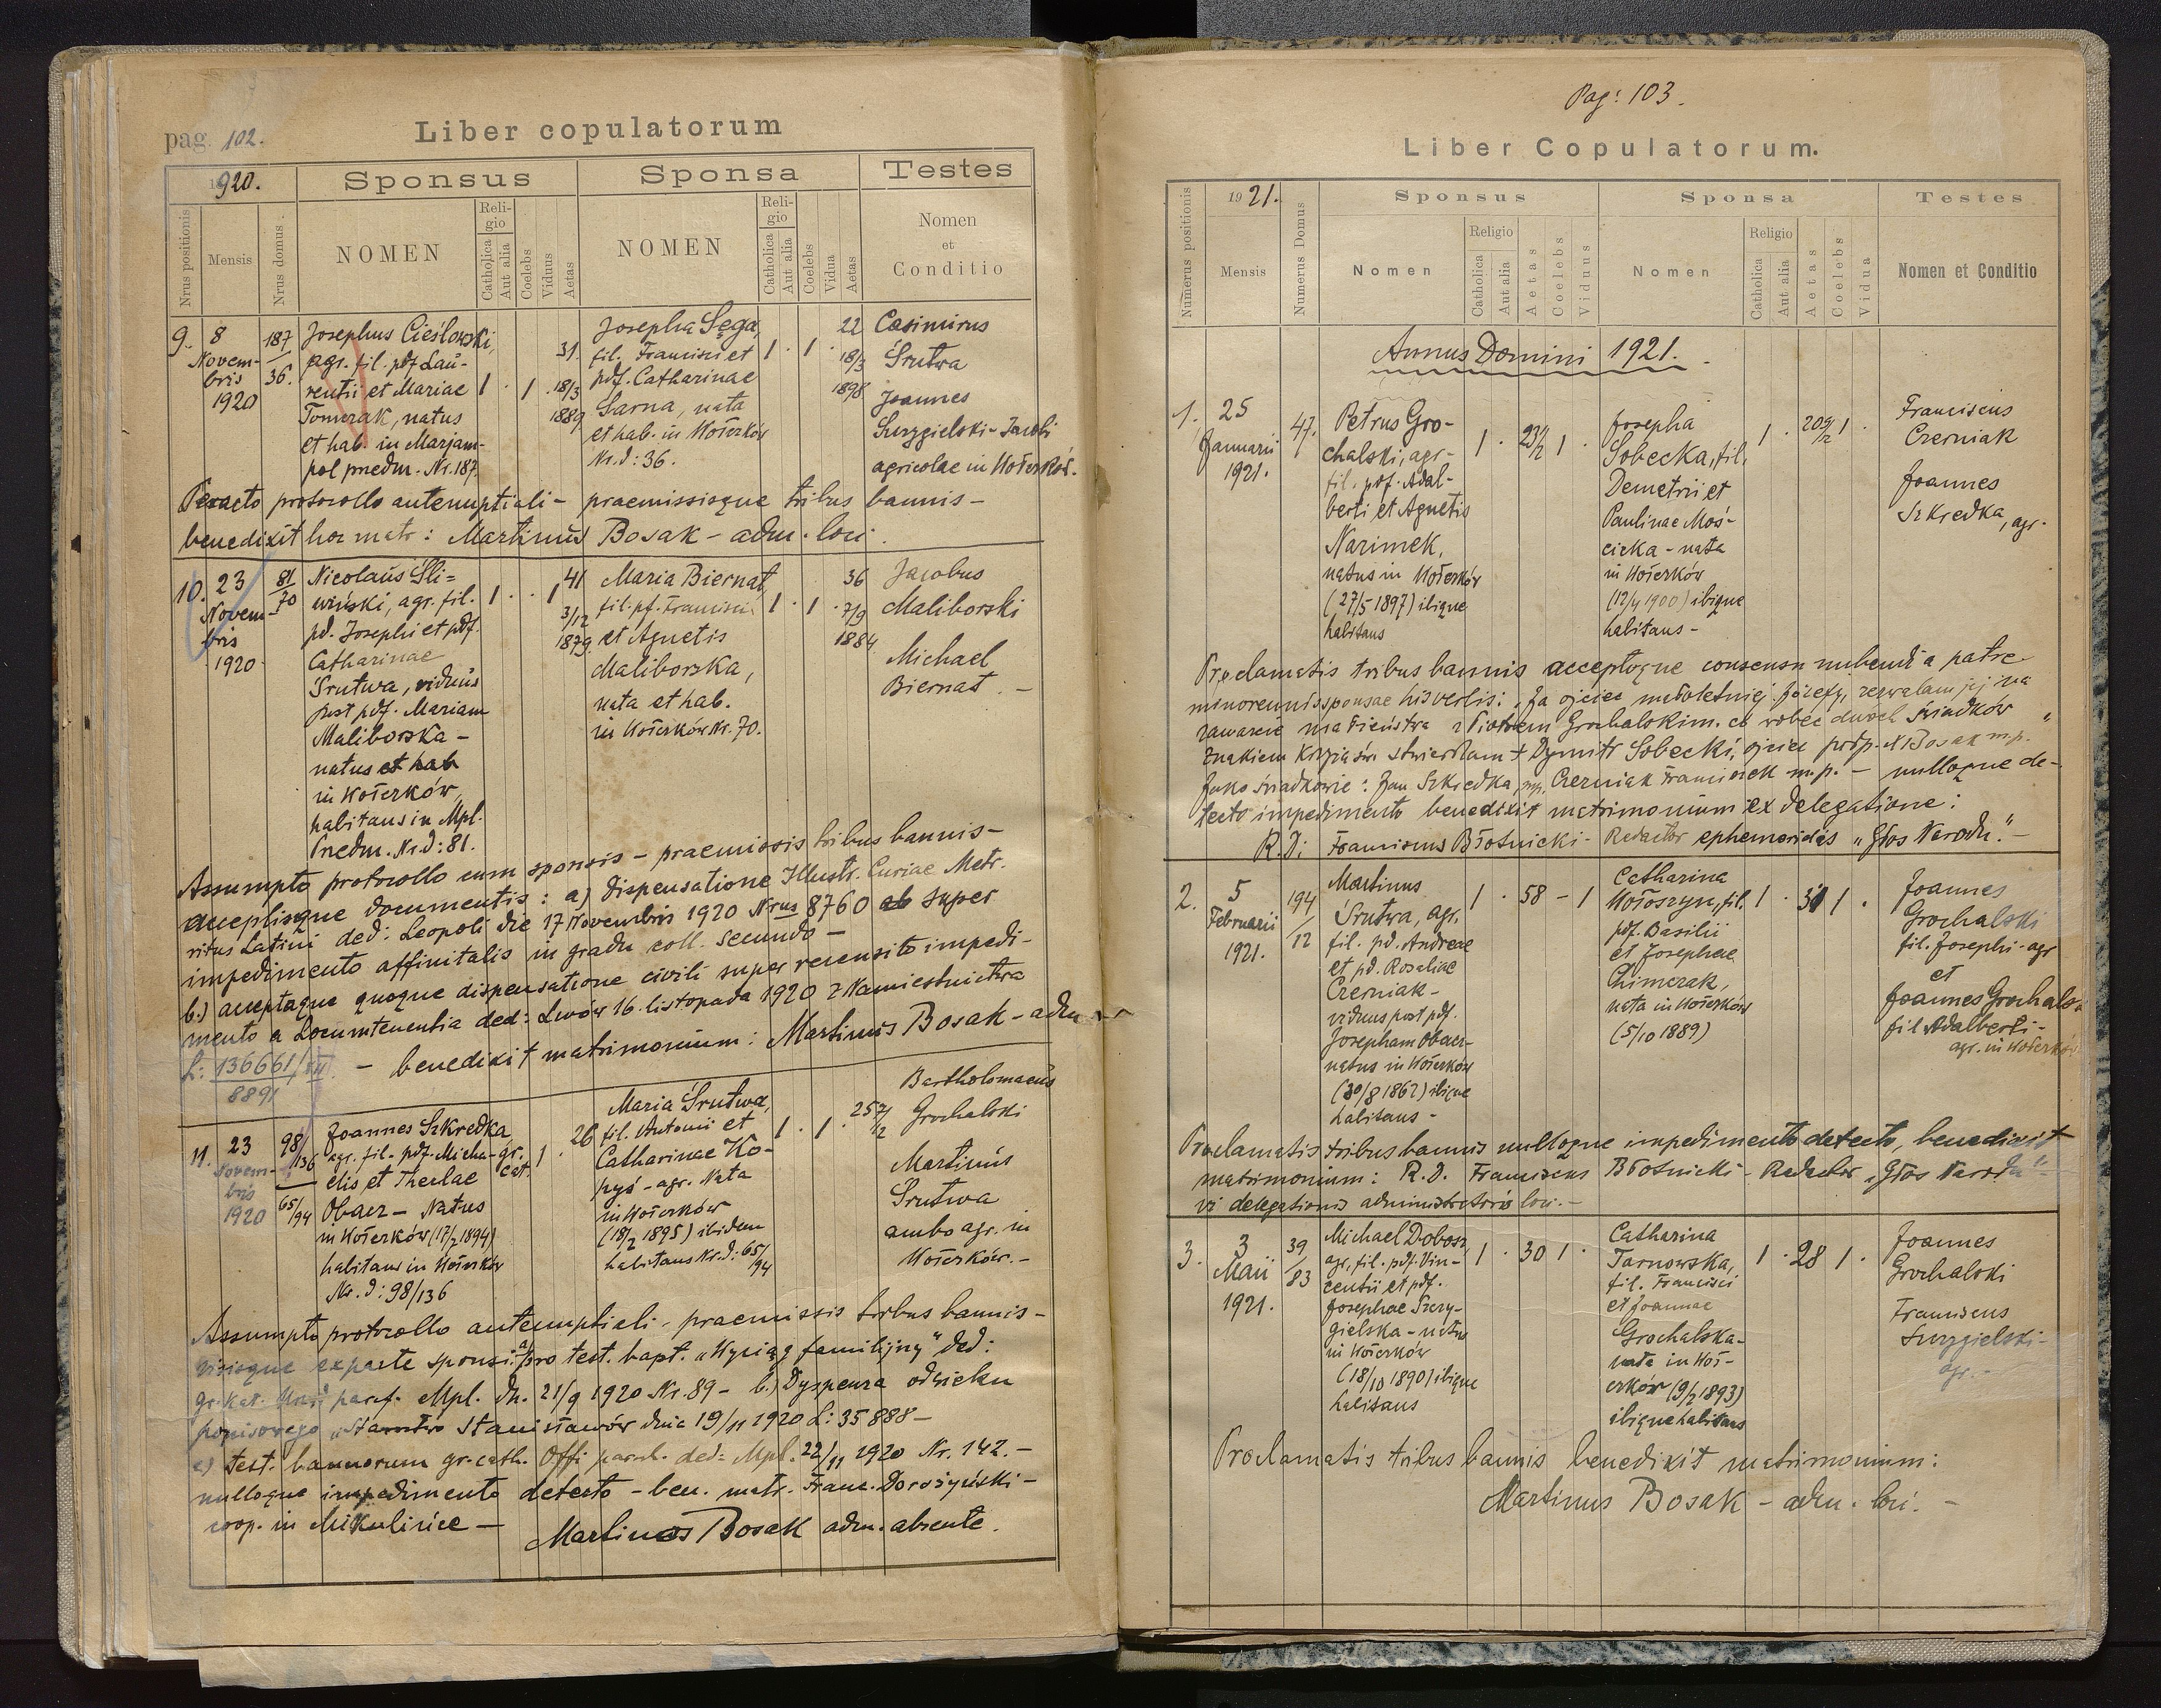 pag. 102.
Liber copulatorum
1920.
Sponsus
Sponsa
Testes
Nrus positionis
Mensis
Nrus domus.
NOMEN
Religio
Catholica
Aut alia
Coelebs
Viduus
Aetas
NOMEN
Religio
Catholica
Aut alia
Coelebs
Vidua
Aetas
Nomen
et
Conditio
9. 8 Novembris 1920
187/36.
Josephus Cieślowski,
agr. fil. pdf Lau-
rentii et Mariae
Tomerak, natus
et hab. in Marjam-
pol predm. Nr. 187
1 . 1 .
31.
18/3
1889
Josepha Sęga,
fil. Francisci et
pdf. Catharinae
Sarna, nata
et hab. in Wołczków
Nr. d: 36.
1 . 1 .
22
18/3
1898
Casimirus
Śrutwa
Joannes
Surzgielski - Jacobi
agricolae in Wołczków.
Peracto protocollo antenuptiali - praemissisque tribus bannis -
benedixit hoc matr: Martinus Bosak - adm. loci.
10. 23 Novembris 1920
81/70
Nicolaus Śli=
wiński, agr. fil.
pd. Josephi et pdf.
Catharinae
Śrutwa, viduus
post pdf. Mariam
Maliborska -
natus et hab
in Wołczków,
habitans in Mpl.
Predm. Nr. d: 81.
1 . . 1
41
3/12
1879.
Maria Biernat,
fil. pf. Francisci
et Agnetis
Maliborska,
nata et hab.
in Wołczków Nr. 70.
1 . 1 .
36
7/9
1884
Jacobus
Maliborski
Michael
Biernat. -
Assumpto protocollo cum sponsis - praemissis tribus bannis -
acceptisque documentis: a) dispensatione Illustr. Curiae Metr.
ritus Latini ded: Leopoli die 17 Novembris 1920 Nrus 8760 ab super
impedimento affinitatis in gradu coll. secundo -
b.) acceptaque quoque dispensatione civili super recensito impedi-
mento a Locumtenentia ded: Lwów 16. listopada 1920 z Namiestnictwa
L: 136661/VII. - benedixit matrimonium: Martinus Bosak - adm
8891
11. 23 Novembris 1920
98/136
65/94
Joannes Szkredka
agr. fil. pdf. Micha-
elis et Theclae
Obacz - Natus
in Wołczków (17/2 1894)
habitans in Wołczków
Nr. d: 98/136
gr. cat. 1 .
26
Maria Śrutwa,
fil. Antonii et
Catharinae Ko-
pyś - agr. Nata
in Wołczków
(18/2 1895) ibidem
habitans Nr. d: 65/94
1 . 1 .
25 7/12
Bartholomaeus
Grochalski
Martinus
Śrutwa
ambo agr. in
Wołczków. -
Assumpto protocollo antenuptiali - praemissis tribus bannis -
visisque ex parte sponsi: a) pro test. bapt. "Wyciąg familijny" ded:
gr. kat. Urząd paraf. Mpl. dn. 21/9 1920 Nr. 89 - b.) Dyspenza od wieku
popisowego "Starostwo Stanisławów dnia 19/11 1920 L: 35888 -
c) test. bannorum gr-cath. Offi paroch. ded: Mpl. 22/11 1920 Nr. 142. -
nulloque impedimento detecto - ben. matr. Franc. Dorożyński -
coop. in Mikulińce - Martinus Bosak adm. absente.
Pag: 103.
Liber Copulatorum.
1921.
Sponsus
Sponsa
Testes
Numerus positionis
Mensis
Numerus Domus
Nomen
Religio
Catholica
Aut alia
Aetas
Coelebs
Viduus
Nomen
Religio
Catholica
Aut alia
Aetas
Coelebs
Vidua
Nomen et Conditio
Annus Domini 1921.
1. 25 Januarii 1921.
47.
Petrus Gro-
chalski, agr-
fil. pdf. Adal-
berti et Agnetis
Narimek,
natus in Wołczków
(27/5 1897) ibique
habitans
1 . 23 1/2 1 .
Josepha
Sobecka, fil.
Demetrii et
Paulinae Moś-
cicka - nata
in Wołczków
(12/4 1900) ibique
habitans -
1 . 20 9/12 1 .
Franciscus
Czerniak
Joannes
Szkredka, agr.
Proclamatis tribus bannis acceptoque consensu nubendi a patre
minorennis sponsae his verbis: "Ja ojciec małoletniej Józefy, zezwalam jej na
zawarcie małżeństwa z Piotrem Grochalskim. co wobec dwóch świadków
znakiem krzyża św. stwierdzam + Dymitr Sobecki, ojciec podp. M Bosak m.p."
Jako świadkowie: Jan Szkredka, mp. Czerniak Franciszek m.p. - nulloque de-
tecto impedimento benedixit matrimonium ex delegatione:
R. D: Franciscus Błotnicki - Redactor ephemeridas "Głos Narodu." -
2. 5 Februarii 1921.
194/12
Martinus
Śrutwa, agr.
fil. pd. Andreae
et pd. Rosaliae
Czerniak -
viduus post pdf.
Josepham Obacz-
natus in Wołczków
(30/8 1862) ibique
habitans -
1 . 58 - 1
Catharina
Wołoszyn, fil.
pdf. Basilii
et Josephae
Chimczak,
nata in Wołczków
(5/10 1889)
1 . 31 1 .
Joannes
Grochalski
fil. Josephi - agr
et
Joannes Grochals-
fil Adalberti -
agr. in Wołczków
Proclamatis tribus bannis nulloque impedimento detecto, benedixit
matrimonium: R. D. Franciscus Błotnicki - Redactor "Głos Narodu"
vi delegationis administratoris loci. -
3. 3 Maii 1921.
39/83
Michael Dobosz
agr, fil. pdf. Vin-
centii et pdf.
Josephae Surzy-
gielska - natus
in Wołczków
(18/10 1890) ibique
habitans
1 . 30 1 .
Catharina
Tarnowska,
fil. Francisci
et Joannae
Grochalska-
nata in Woł-
czków (9/2 1893)
ibique habitans
1 . 28 1 .
Joannes
Grochalski
Franciscus
Surzgielski -
agr. -
Proclamatis tribus bannis benedixit matrimonium:
Martinus Bosak - adm. loci. -